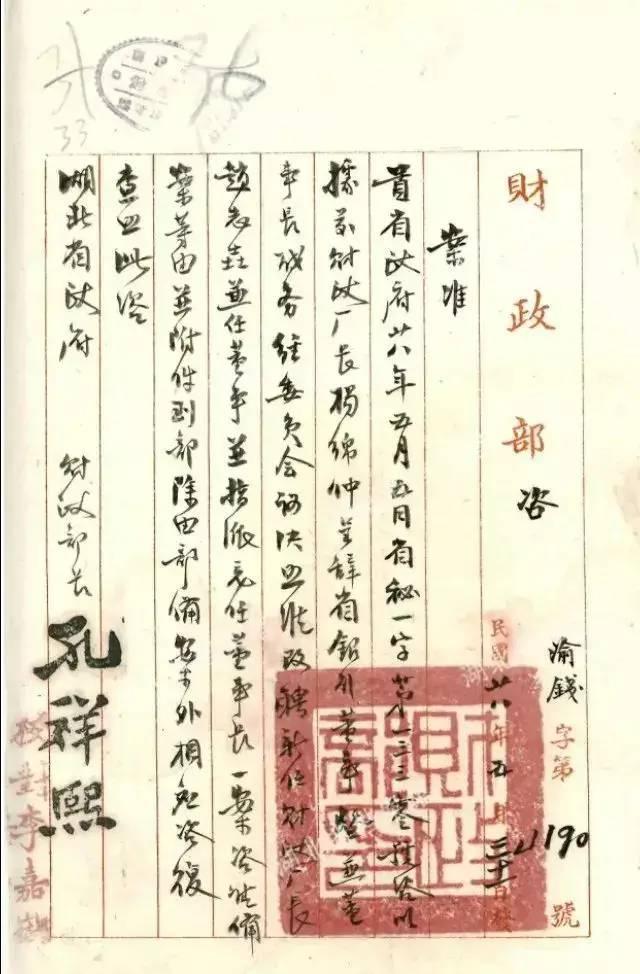 財政部咨
渝錢字第 4190 號
民國廿八年五月三十一日發
案准
貴省政府廿八年五月五日省秘一字第一二三零號咨以
據前財政廳長楊綿仲呈辭省銀行董事暨兼董
事長職務經委員會議決照准改聘新任財政廳長
趙志垚兼任董事並指派兼任董事長一案咨請備
案等由並附件到部除由部備案外相應咨復
查照此咨
湖北省政府
財政部長 孔祥熙
校對李嘉鶴
33